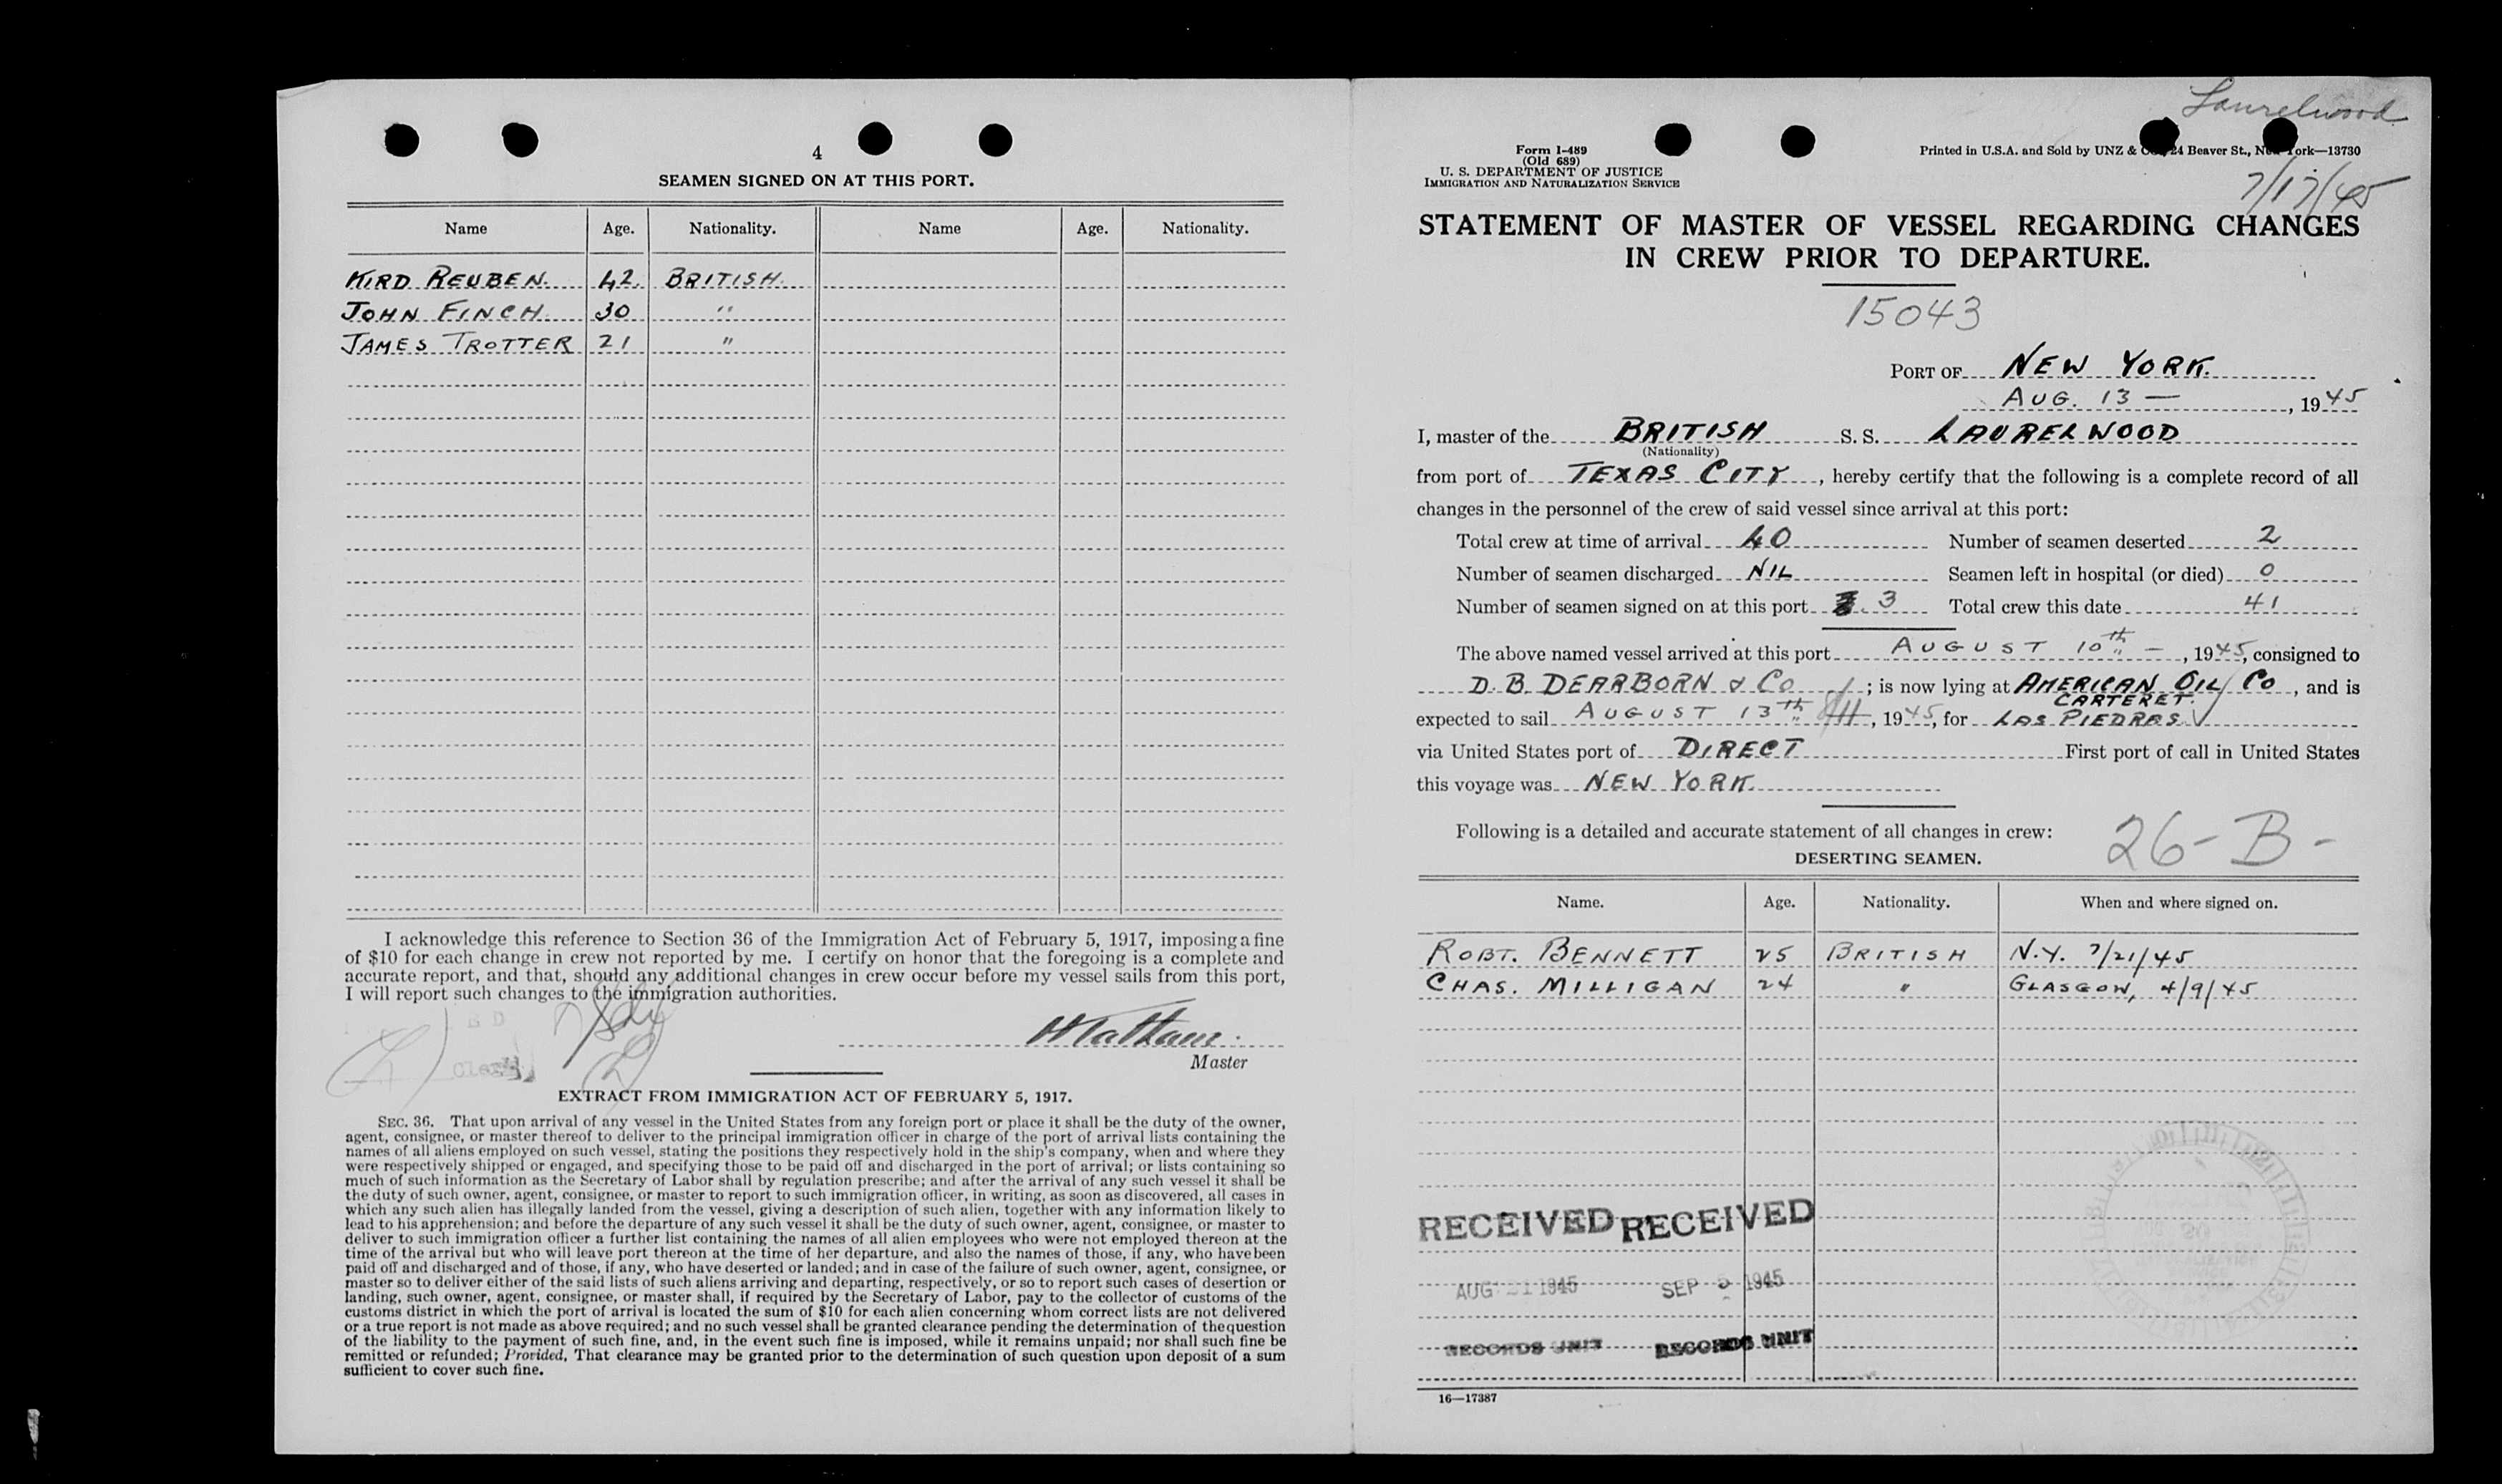 4
SEAMEN SIGNED ON AT THIS PORT.
Name Age. Nationality. Name Age. Nationality.
KIRD REUBEN. 42. BRITISH.
JOHN FINCH. 30 "
JAMES TROTTER 21 "
I acknowledge this reference to Section 36 of the Immigration Act of February 5, 1917, imposing a fine
of $10 for each change in crew not reported by me. I certify on honor that the foregoing is a complete and
accurate report, and that, should any additional changes in crew occur before my vessel sails from this port,
I will report such changes to the immigration authorities.
Clerk
Master
EXTRACT FROM IMMIGRATION ACT OF FEBRUARY 5, 1917.
SEC. 36. That upon arrival of any vessel in the United States from any foreign port or place it shall be the duty of the owner,
agent, consignee, or master thereof to deliver to the principal immigration officer in charge of the port of arrival lists containing the
names of all aliens employed on such vessel, stating the positions they respectively hold in the ship's company, when and where they
were respectively shipped or engaged, and specifying those to be paid off and discharged in the port of arrival; or lists containing so
much of such information as the Secretary of Labor shall by regulation prescribe; and after the arrival of any such vessel it shall be
the duty of such owner, agent, consignee, or master to report to such immigration officer, in writing, as soon as discovered, all cases in
which any such alien has illegally landed from the vessel, giving a description of such alien, together with any information likely to
lead to his apprehension; and before the departure of any such vessel it shall be the duty of such owner, agent, consignee, or master to
deliver to such immigration officer a further list containing the names of all alien employees who were not employed thereon at the
time of the arrival but who will leave port thereon at the time of her departure, and also the names of those, if any, who have been
paid off and discharged and of those, if any, who have deserted or landed; and in case of the failure of such owner, agent, consignee, or
master so to deliver either of the said lists of such aliens arriving and departing, respectively, or so to report such cases of desertion or
landing, such owner, agent, consignee, or master shall, if required by the Secretary of Labor, pay to the collector of customs of the
customs district in which the port of arrival is located the sum of $10 for each alien concerning whom correct lists are not delivered
or a true report is not made as above required; and no such vessel shall be granted clearance pending the determination of the question
of the liability to the payment of such fine, and, in the event such fine is imposed, while it remains unpaid; nor shall such fine be
remitted or refunded; Provided, That clearance may be granted prior to the determination of such question upon deposit of a sum
sufficient to cover such fine.
Laurelwood
Form I-489
(Old 689)
U. S. DEPARTMENT OF JUSTICE
IMMIGRATION AND NATURALIZATION SERVICE
Printed in U.S.A. and Sold by UNZ & Co., 24 Beaver St., New York—13730
7/17/45
STATEMENT OF MASTER OF VESSEL REGARDING CHANGES
IN CREW PRIOR TO DEPARTURE.
15043
PORT OF NEW YORK.
AUG. 13 — , 1945
I, master of the BRITISH S. S. LAURELWOOD
(Nationality)
from port of TEXAS CITY, hereby certify that the following is a complete record of all
changes in the personnel of the crew of said vessel since arrival at this port:
Total crew at time of arrival 40 Number of seamen deserted 2
Number of seamen discharged NIL Seamen left in hospital (or died) 0
Number of seamen signed on at this port 3 Total crew this date 41
The above named vessel arrived at this port AUGUST 10th — , 1945, consigned to
D. B. DEARBORN & Co ; is now lying at AMERICAN OIL Co , and is
CARTERET.
expected to sail AUGUST 13th , 1945, for LAS PIEDRAS
via United States port of DIRECT First port of call in United States
this voyage was NEW YORK.
Following is a detailed and accurate statement of all changes in crew:
26-B-
DESERTING SEAMEN.
Name. Age. Nationality. When and where signed on.
ROBT. BENNETT 25 BRITISH N.Y. 7/21/45
CHAS. MILLIGAN 24 " GLASGOW, 4/9/45
RECEIVED RECEIVED
AUG 21 1945 SEP 5 1945
RECORDS UNIT RECORDS UNIT
16—17387